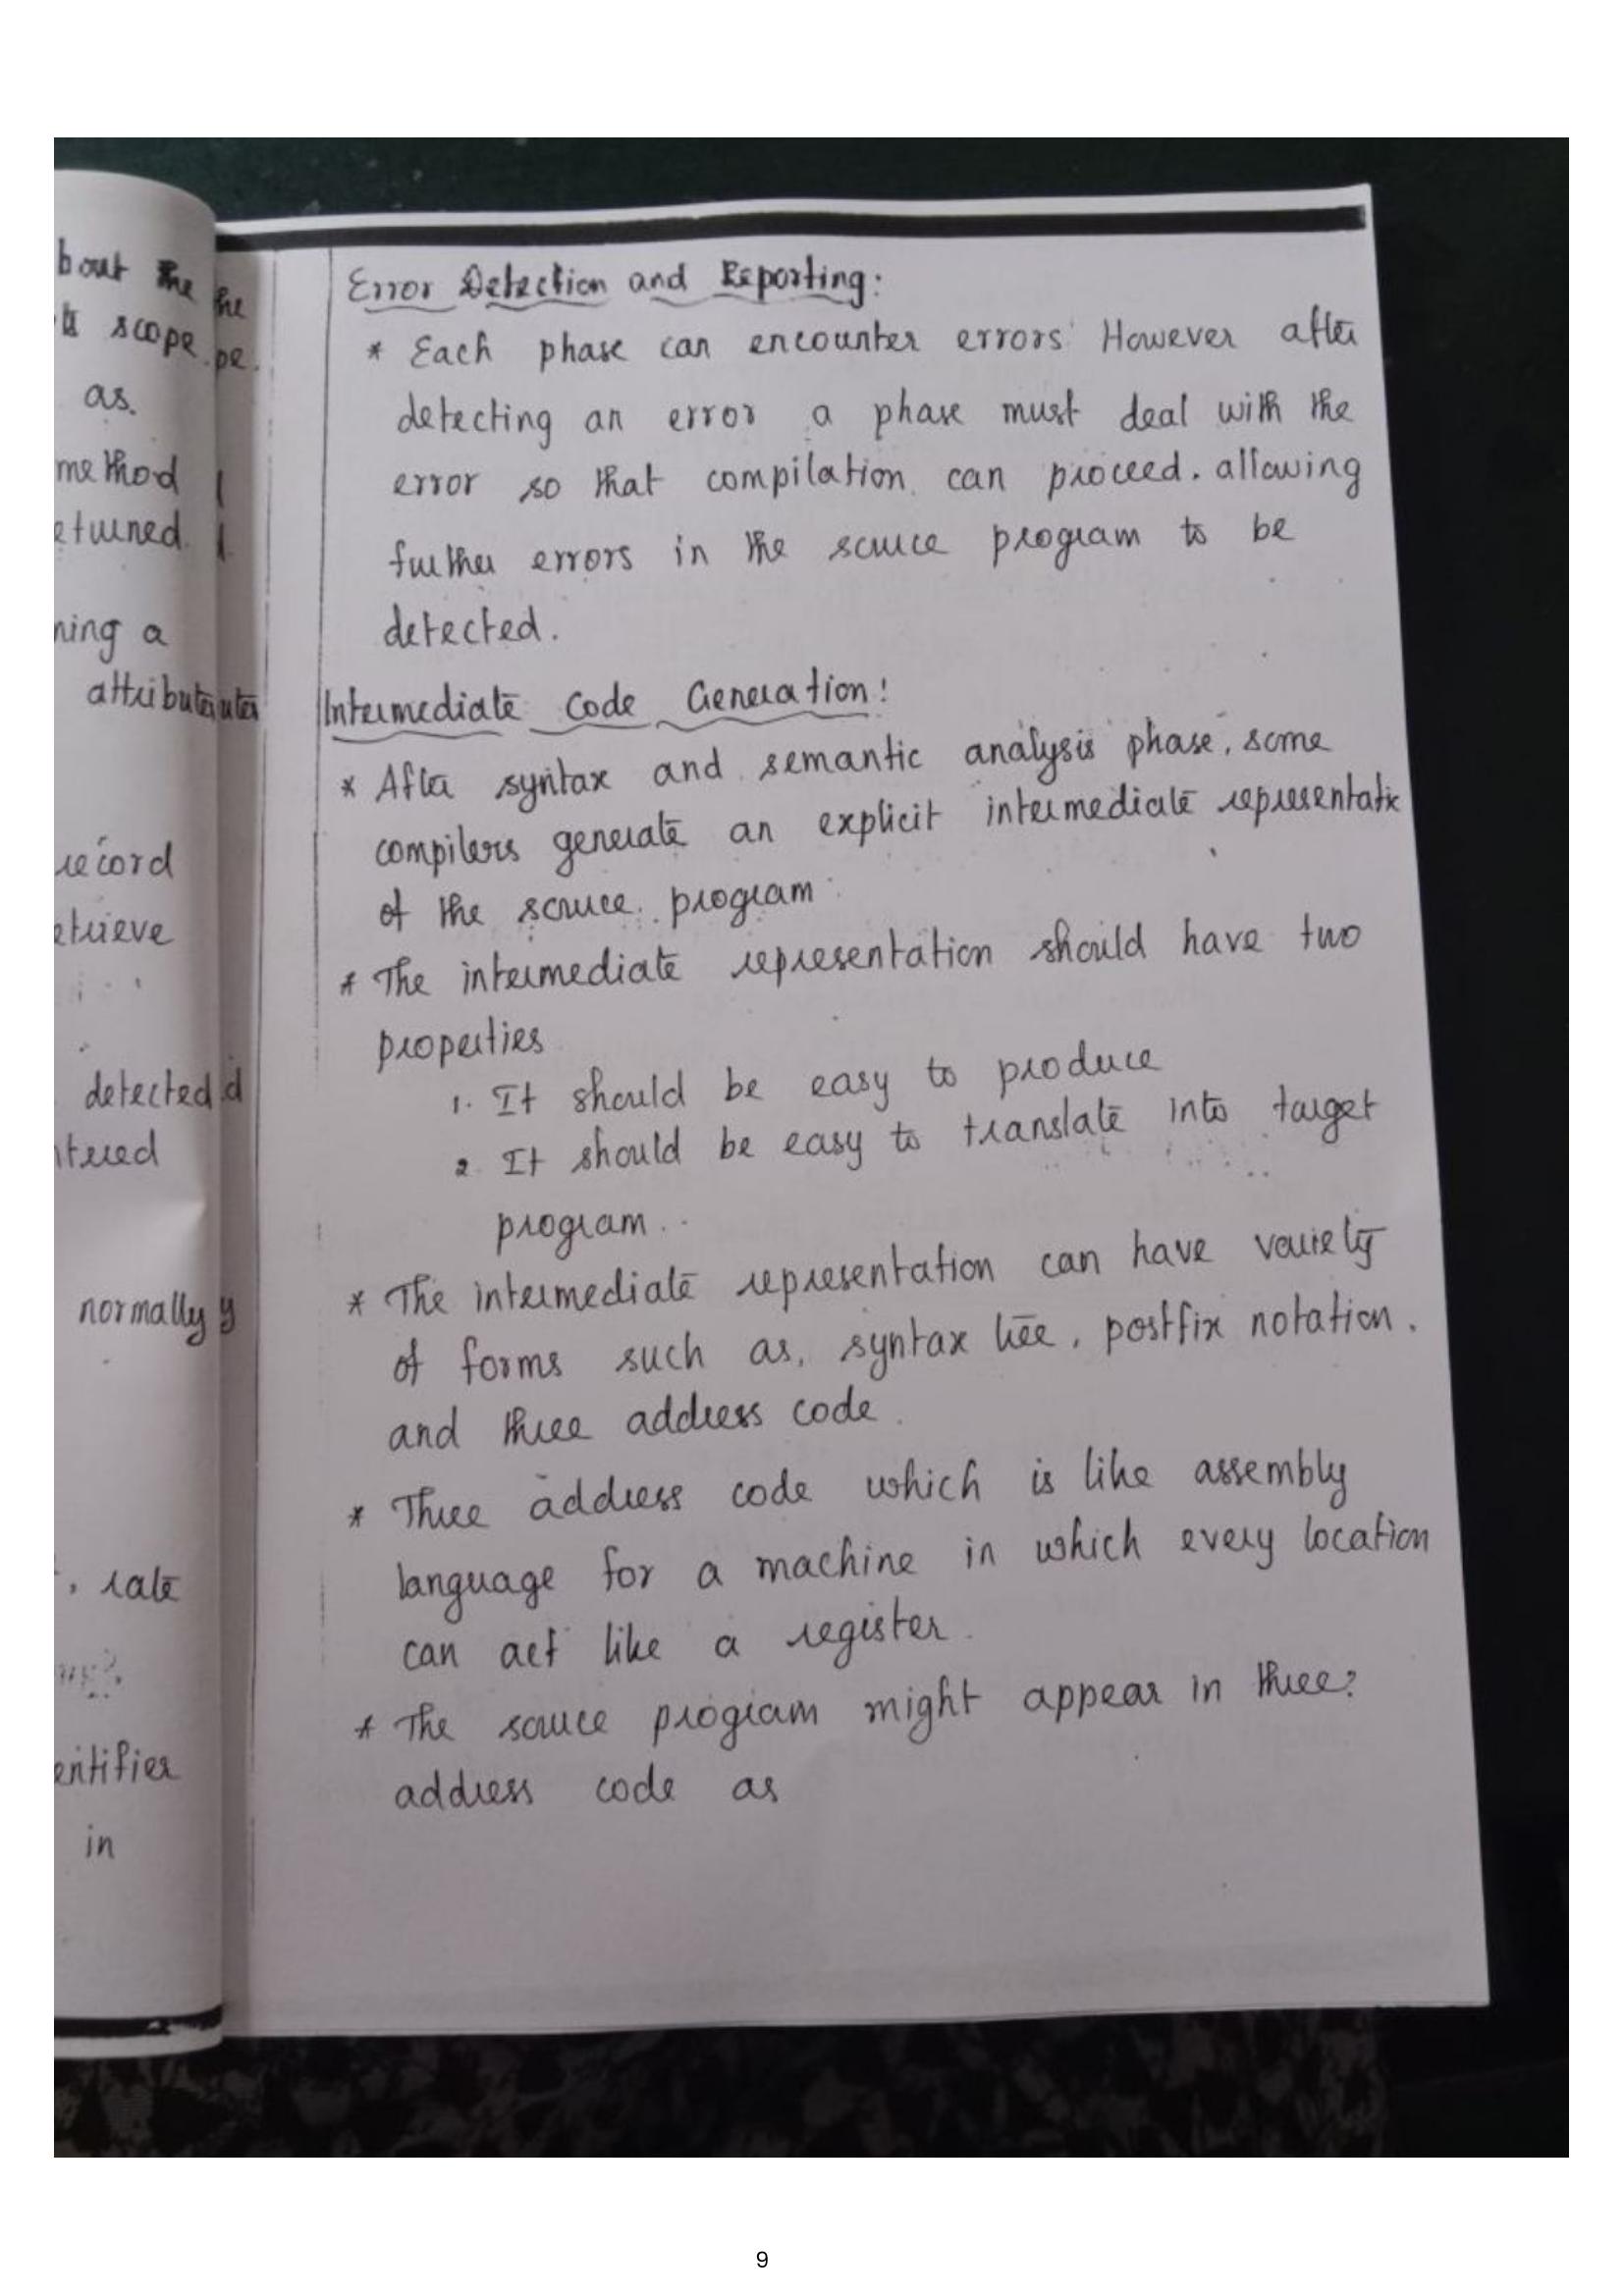 bout the he
scope. pe.
as.
method
eturned.
ning a
attributes utes
record
etrieve
detected d
ntered
normally y
rate
entifier
in
Error Detection and Reporting:
* Each phase can encounter errors. However after
detecting an error a phase must deal with the
error so that compilation can proceed. allowing
further errors in the source program to be
detected.
Intermediate Code Generation:
* After syntax and semantic analysis phase, some
compilers generate an explicit intermediate representatic
of the source program.
* The intermediate representation should have two
properties
1. It should be easy to produce
2. It should be easy to translate into target
program.
* The intermediate representation can have variety
of forms such as, syntax tree, postfix notation,
and three address code.
* Three address code which is like assembly
language for a machine in which every location
can act like a register.
* The source program might appear in three
address code as
9